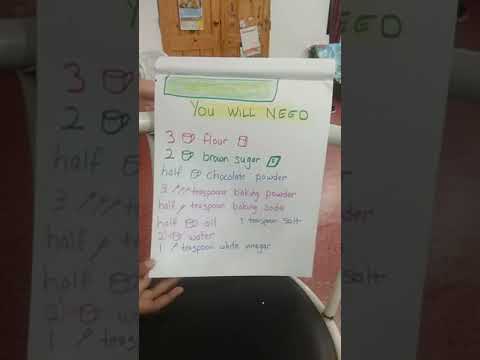 YOU WILL NEED
3 flour
2 brown sugar
half chocolate powder
3 teaspoons baking powder
half teaspoon baking soda
half oil 1 teaspoon salt
2 water
1 teaspoon white vinegar